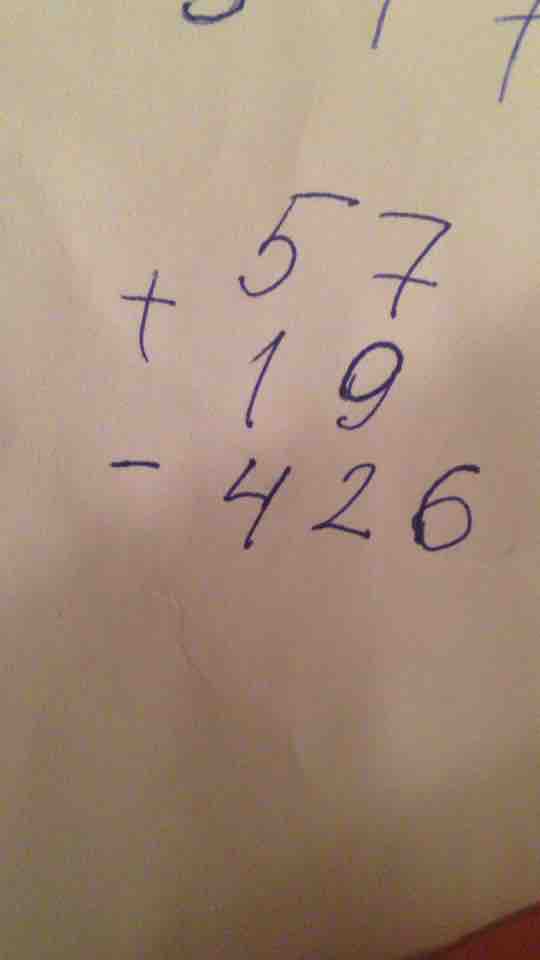 57
+
19
- 426